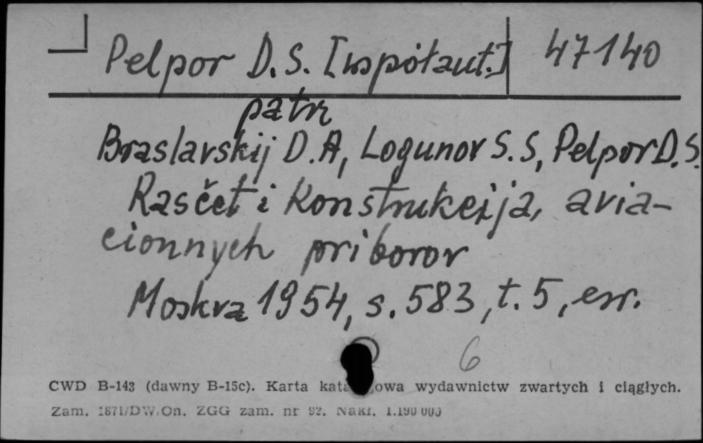 Pelpor D. S. [współaut.] 47140
patrz
Braslavskij D. A, Logunov S. S, Pelpor D. S.
Rasčet i Konstrukcija, avia-
cionnych priborov
Moskva 1954, s. 583, t. 5, err.
6
CWD B-143 (dawny B-15c). Karta katalogowa wydawnictw zwartych i ciągłych.
Zam. 1871/DW/On. ZGG zam. nr 92. Nakł. 1.190 000